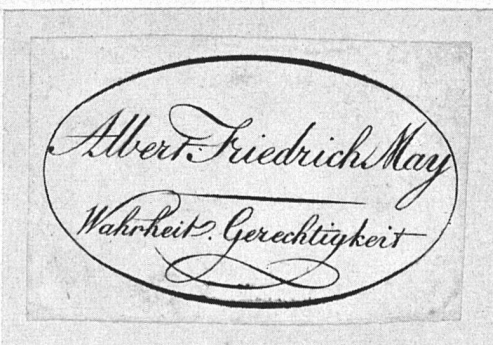 Albert Friedrich May
Wahrheit. Gerechtigkeit